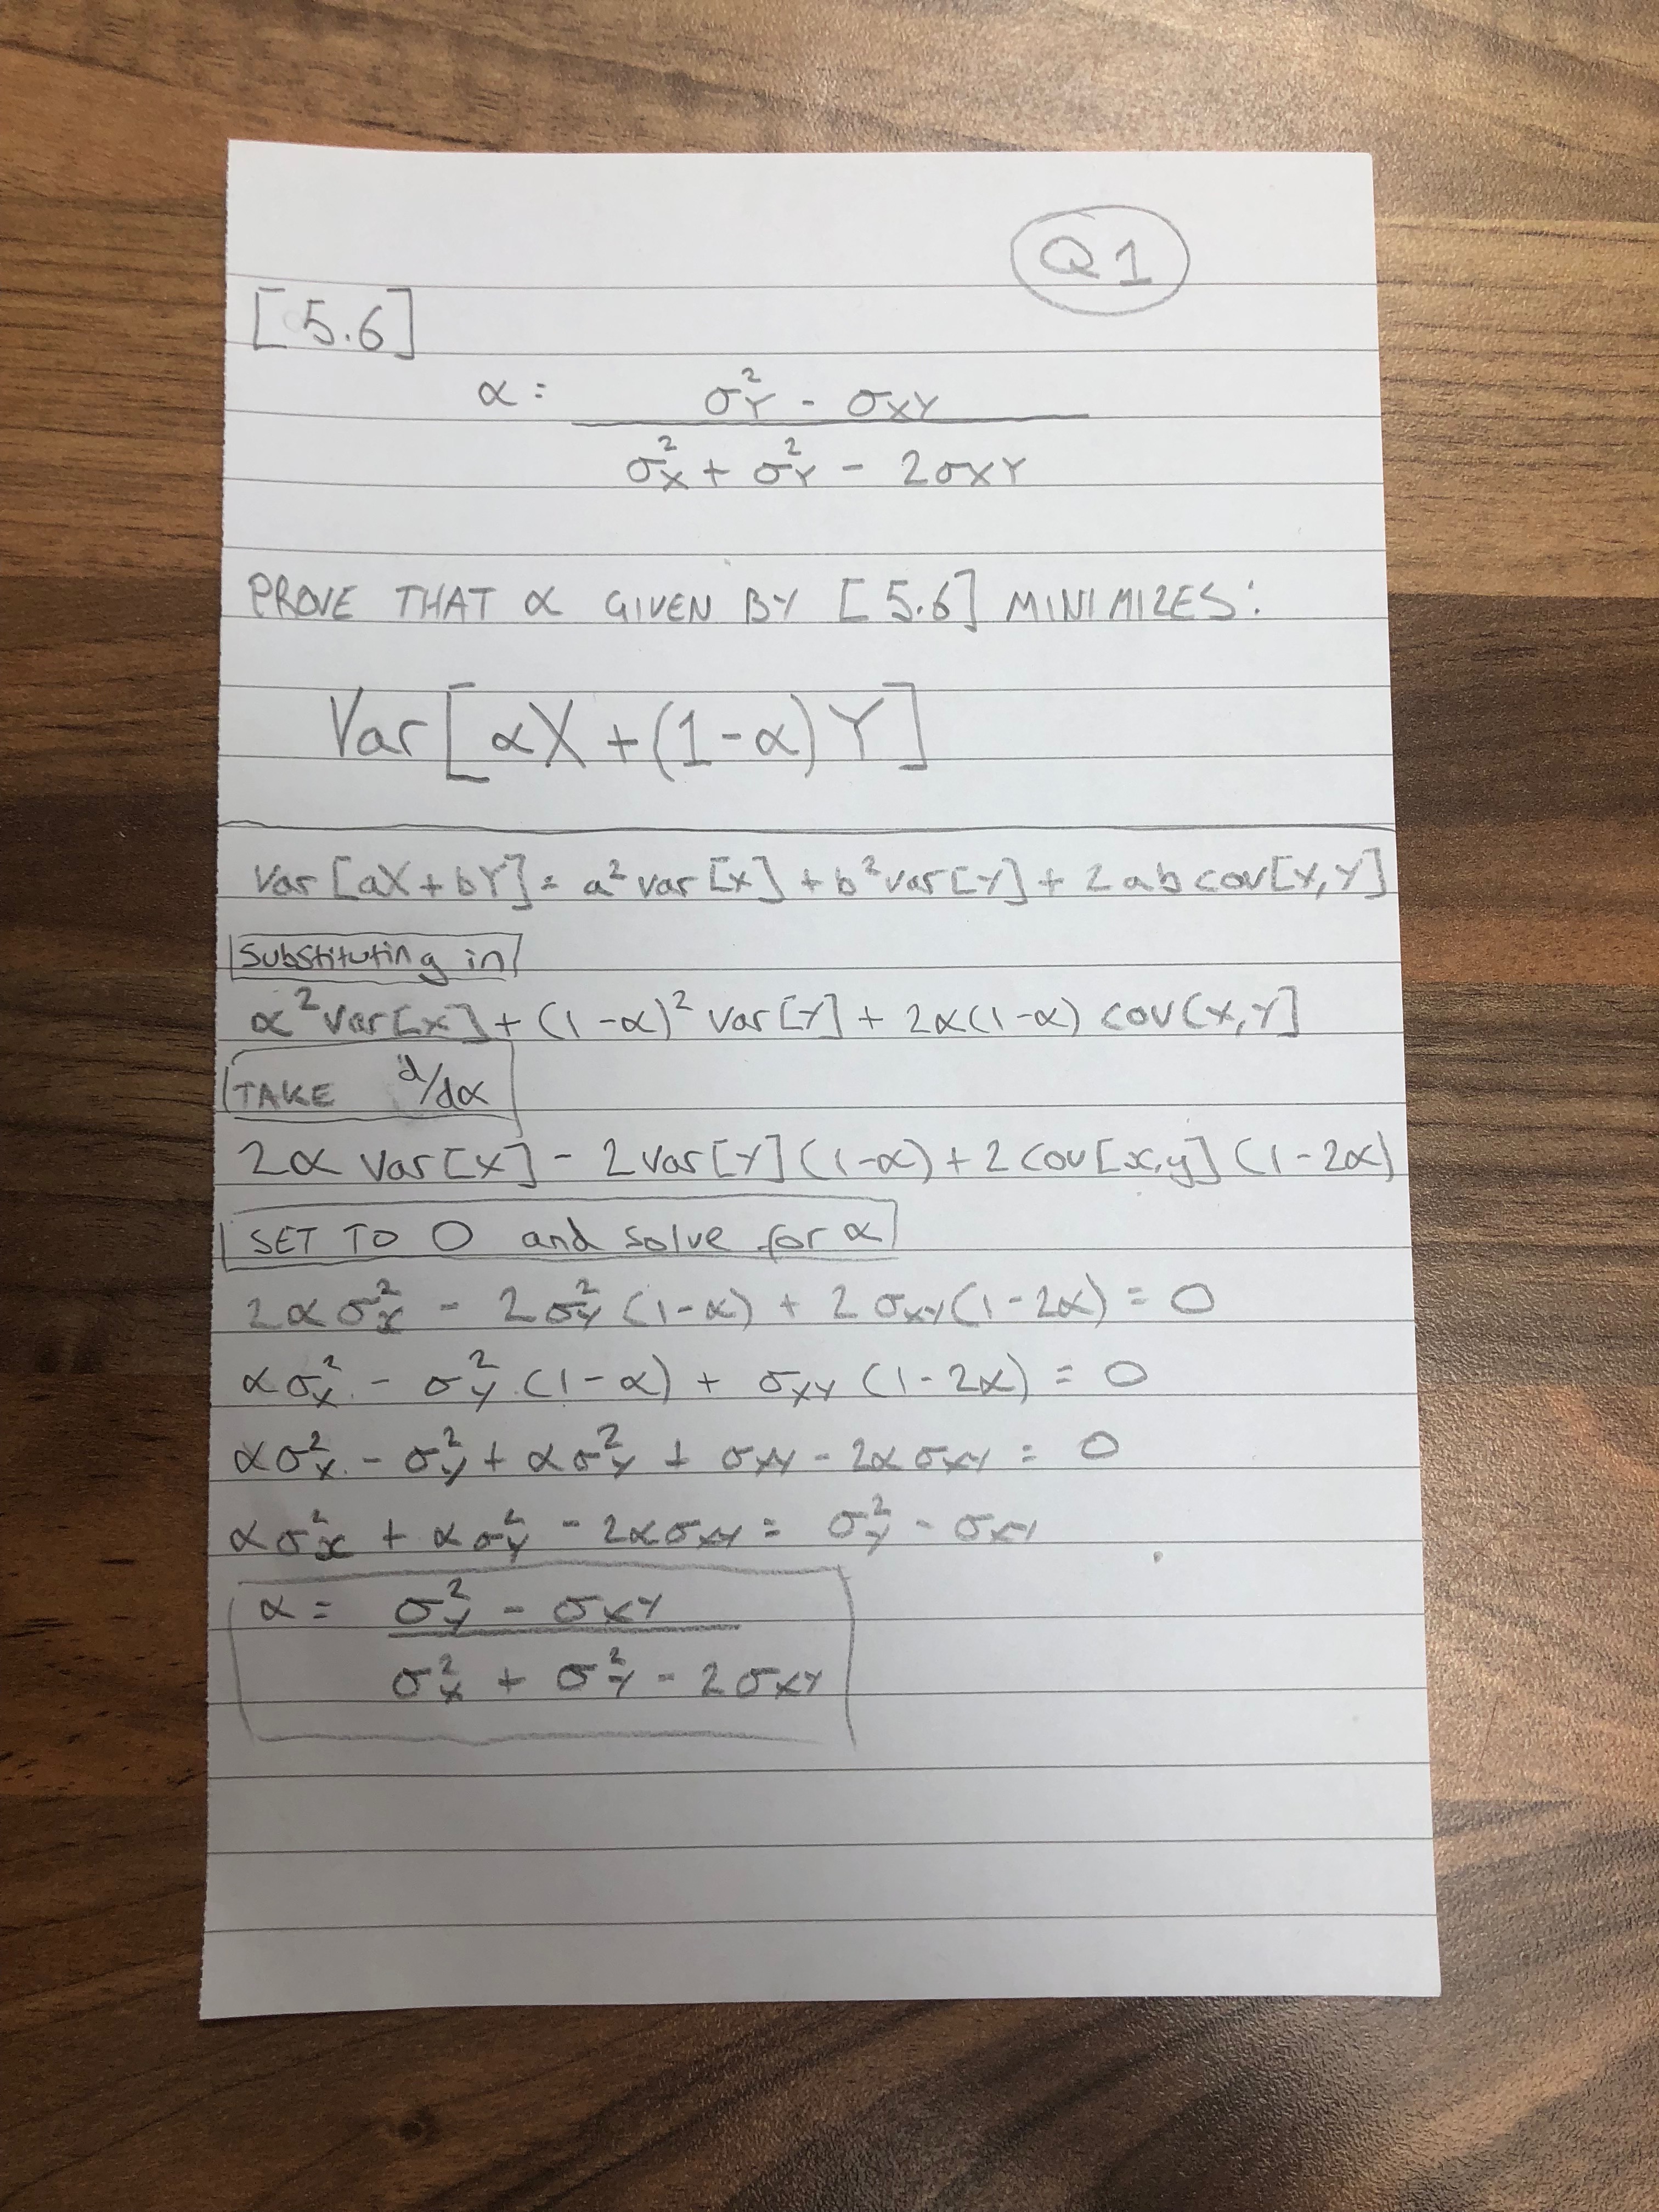 Q1
[5.6]
α = σ²Y - σXY
σ²X + σ²Y - 2σXY
PROVE THAT α GIVEN BY [5.6] MINIMIZES:
Var[αX + (1-α)Y]
Var[aX + bY] = a² var[X] + b² var[Y] + 2ab cov[X,Y]
Substituting in
α² Var[X] + (1-α)² Var[Y] + 2α(1-α) cov[X,Y]
TAKE d/dα
2α Var[X] - 2Var[Y](1-α) + 2Cov[x,y](1-2α)
SET TO 0 and solve for α
2ασ²x - 2σ²Y(1-α) + 2σXY(1-2α) = 0
ασ²X - σ²Y(1-α) + σXY(1-2α) = 0
ασ²X - σ²Y + ασ²Y + σXY - 2ασXY = 0
ασ²x + ασ²Y - 2ασXY = σ²Y - σXY
α = σ²Y - σXY
σ²X + σ²Y - 2σXY